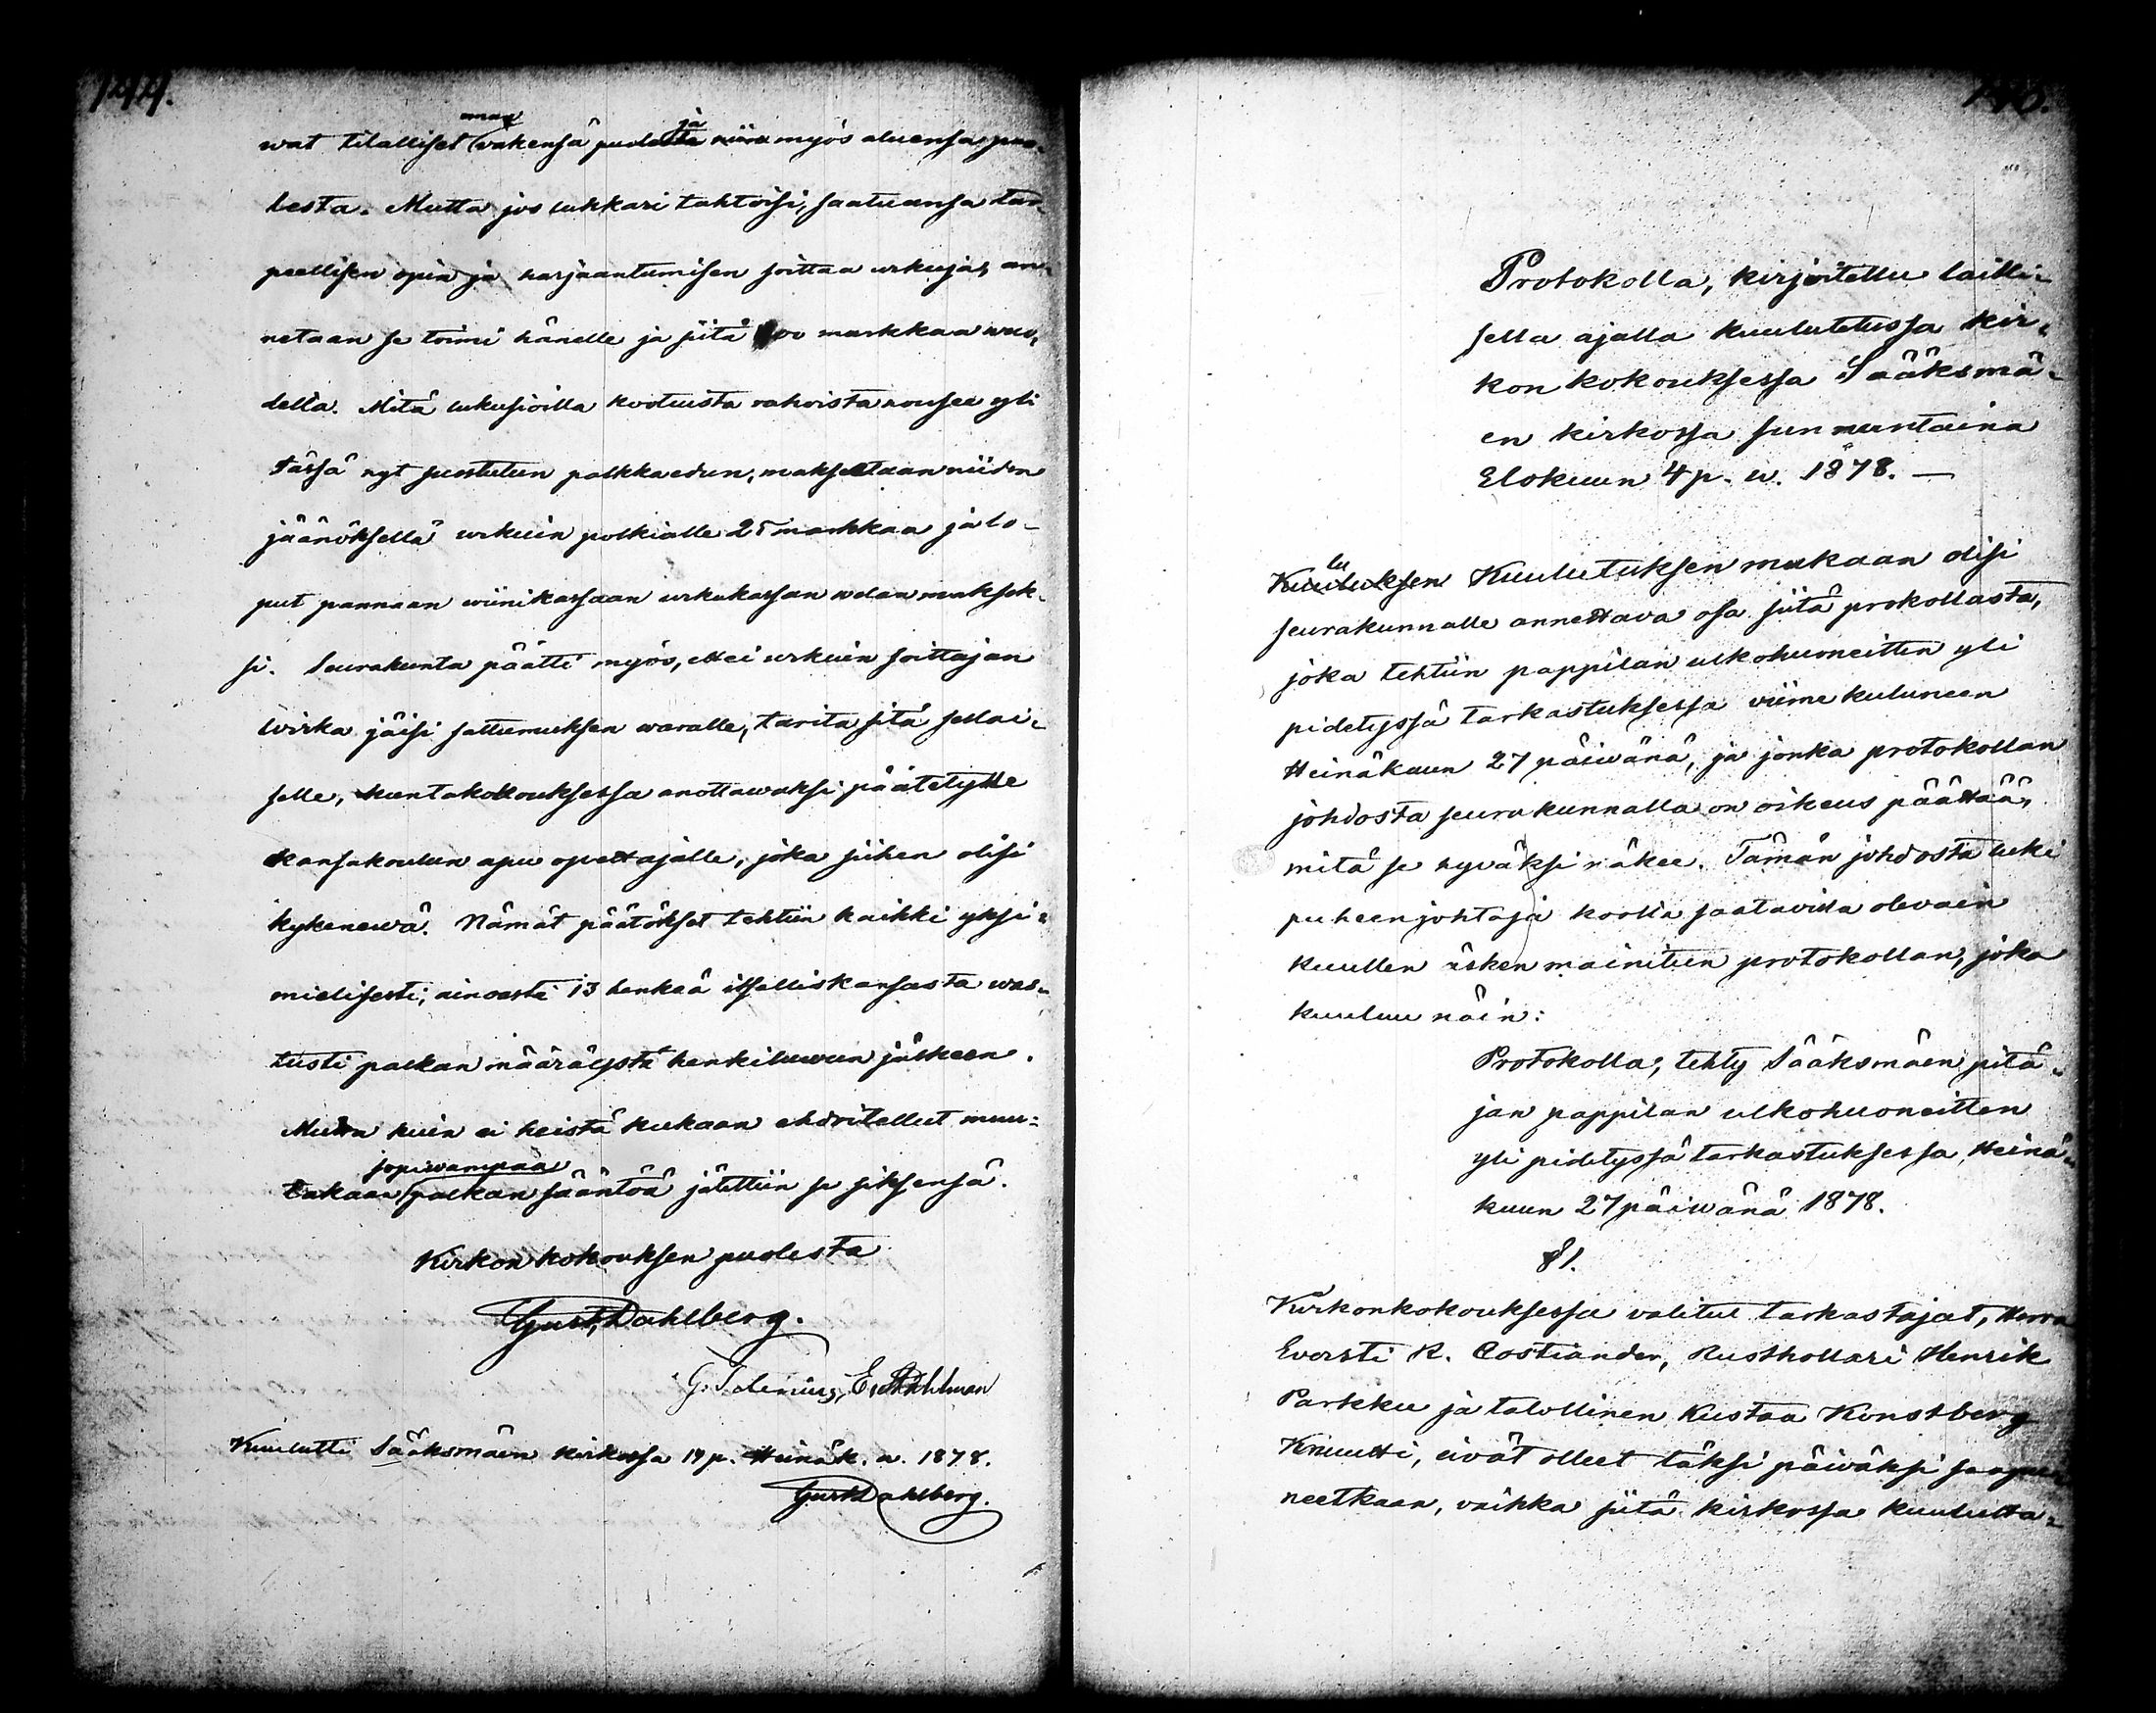 144.
wat tilalliset oman wäkensä puolesta ja niin myös aluensa puo-
lesta. Mutta jos lukkari tahtoisi, saatuansa tar-
peellisen opin ja harjaantumisen soittaa urkuja, an-
netaan se toimi hänelle ja siitä 100 markkaa wuo-
delta. Mitä lukusioilla kootuista rahoista nousee yli
tässä nyt suostutun palkkaedun, maksetaan niiden
jäänöksellä urkuin polkialle 25 markkaa ja lo-
put pannaan wiinikassaan urkukassan welan maksok-
si. Seurakunta päätti myös, ettei urkuin soittajan
wirka jäisi sattumuksen waralle, tarita sitä sellai-
selle, kuntakokouksessa anottawaksi päätetylle
kansakoulun apu opettajalle, joka siihen olisi
kykenewä. Nämät päätökset tehtiin kaikki yksi-
mielisesti; ainoasti 13 henkeä itselliskansasta was-
tusti palkan määräystä henkiluwun jälkeen.
Mutta kuin ei heistä kukaan ehdoitellut muu-
takaan sopiwampaa palkan sääntöä jätettiin se siksensä.
Kirkon kokouksen puolesta
Gust. Dahlberg.
G. Idenius, E. Ahlman
Kuulutti Sääksmäen kirkossa 14 p. Heinäk. w. 1878.
Gust Dahlberg.
Protokolla, kirjoitettu lailli-
sella ajalla kuulutetussa kir-
kon kokouksessa Sääksmä-
en kirkossa sunnuntaina
Elokuun 4 p. w. 1878. —
Kuulutuksen Kuulutuksen mukaan olisi
seurakunnalle annettava osa siitä prokollasta,
joka tehtiin pappilan ulkohuoneitten yli
pidetyssä tarkastuksessa viime kuluneen
Heinäkuun 27 päiwänä, ja jonka protokollan
johdosta seurakunnalla on oikeus päättää,
mitä se hyväksi näkee. Tämän johdosta luki
puheenjohtaja koolla saatavilla olevain
kuullen äsken mainitun protokollan, joka
kuuluu näin:
Protokolla, tehty Sääksmäen pitä-
jan pappilan ulkohuoneitten
yli pidetyssä tarkastuksessa, Heinä-
kuun 27 päiwänä 1878.
§ 1.
Kirkonkokouksessa valitut tarkastajat, Herra
Eversti R. Costiander, Rusthollari Henrik
Parkku ja talollinen Kustaa Konstberg
Knuutti, eivät olleet täksi päiväksi saapu-
neetkaan, vaikka siitä kirkossa kuulutta-